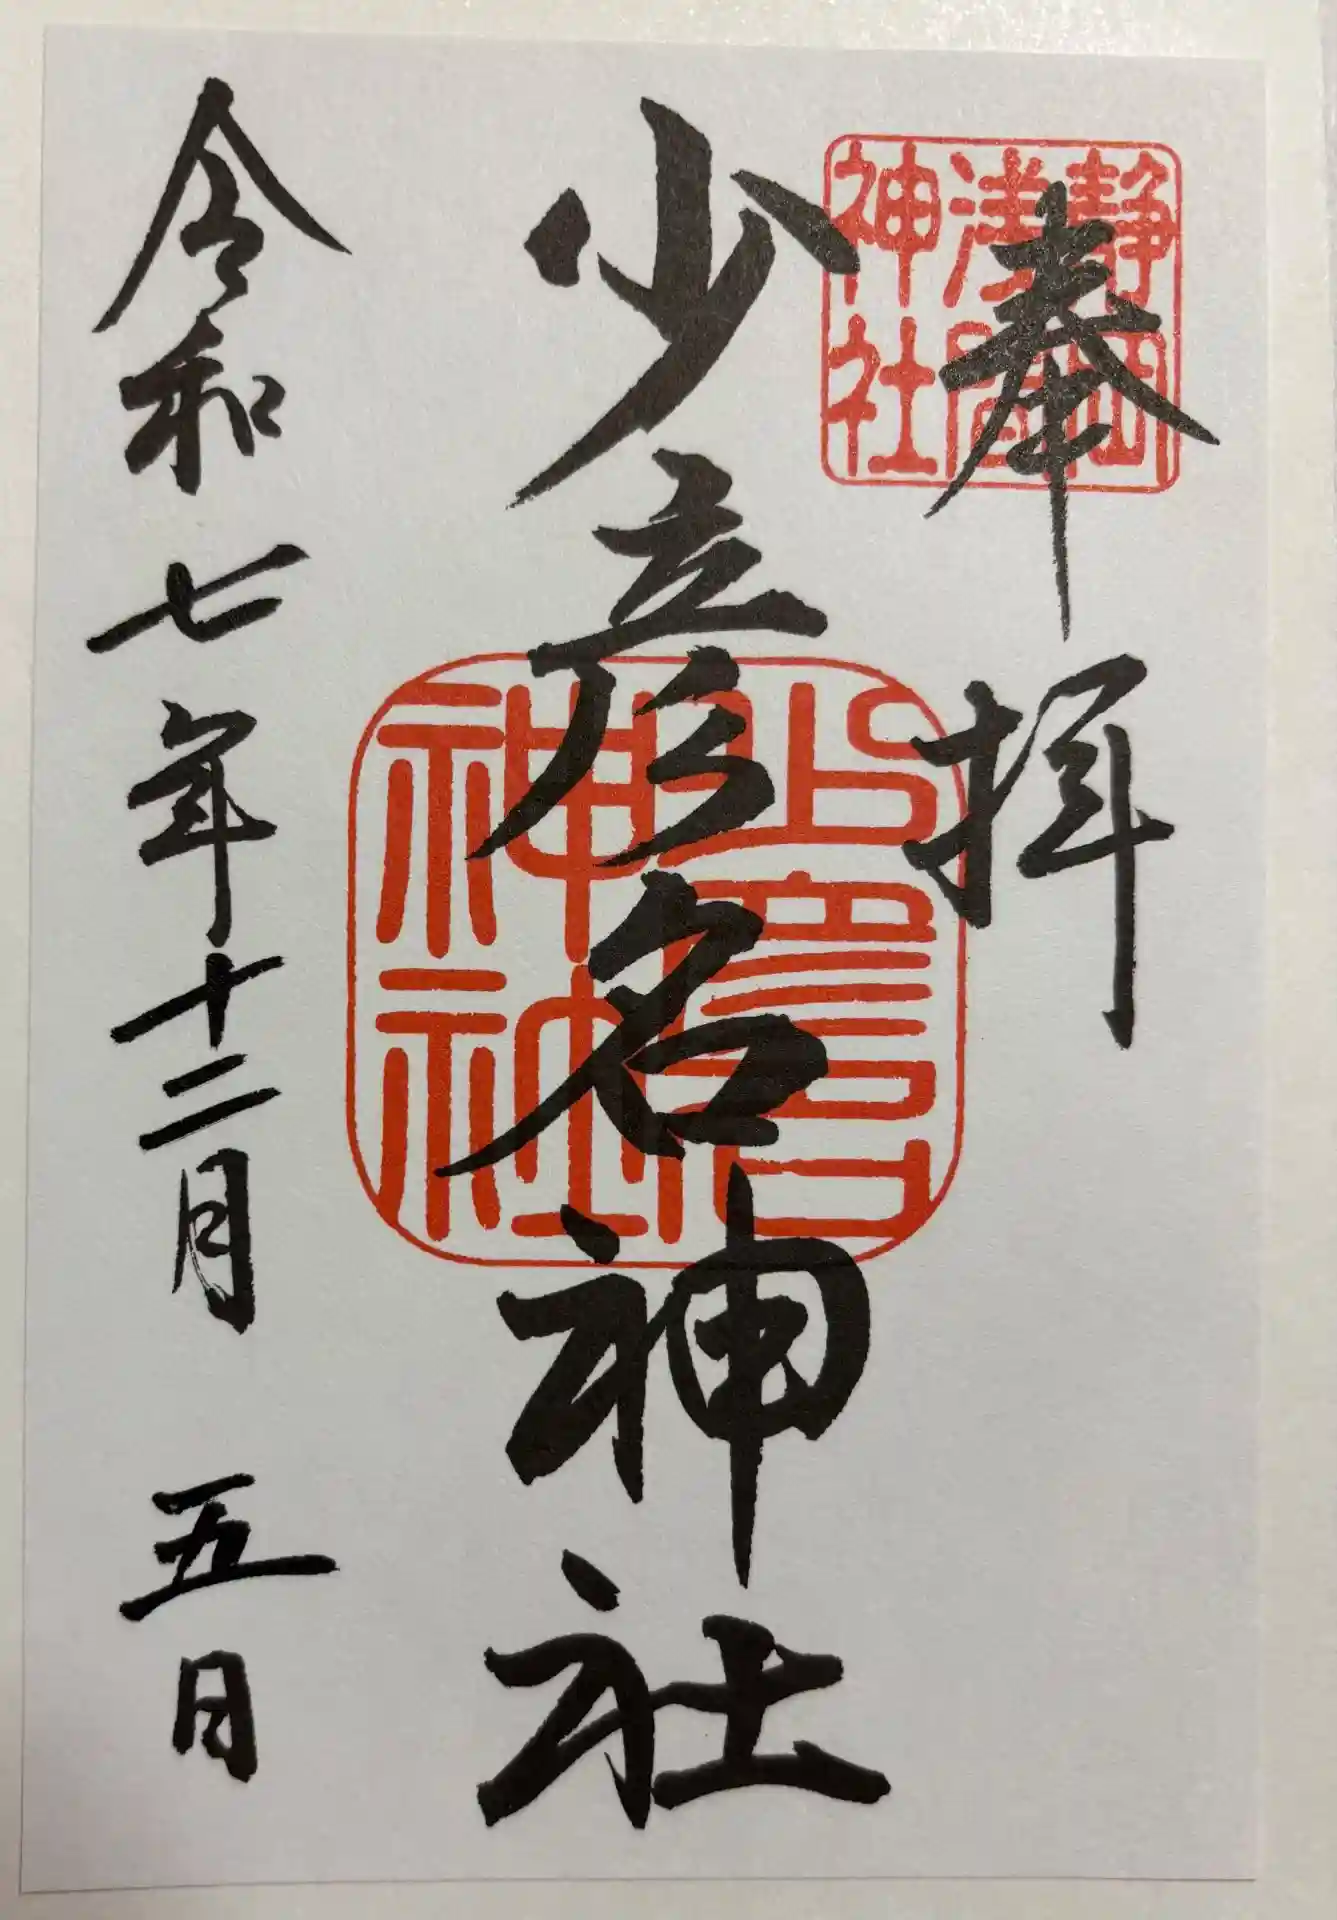 奉拝
静岡
浅間
神社
少彦名神社
神社
令和七年十二月五日